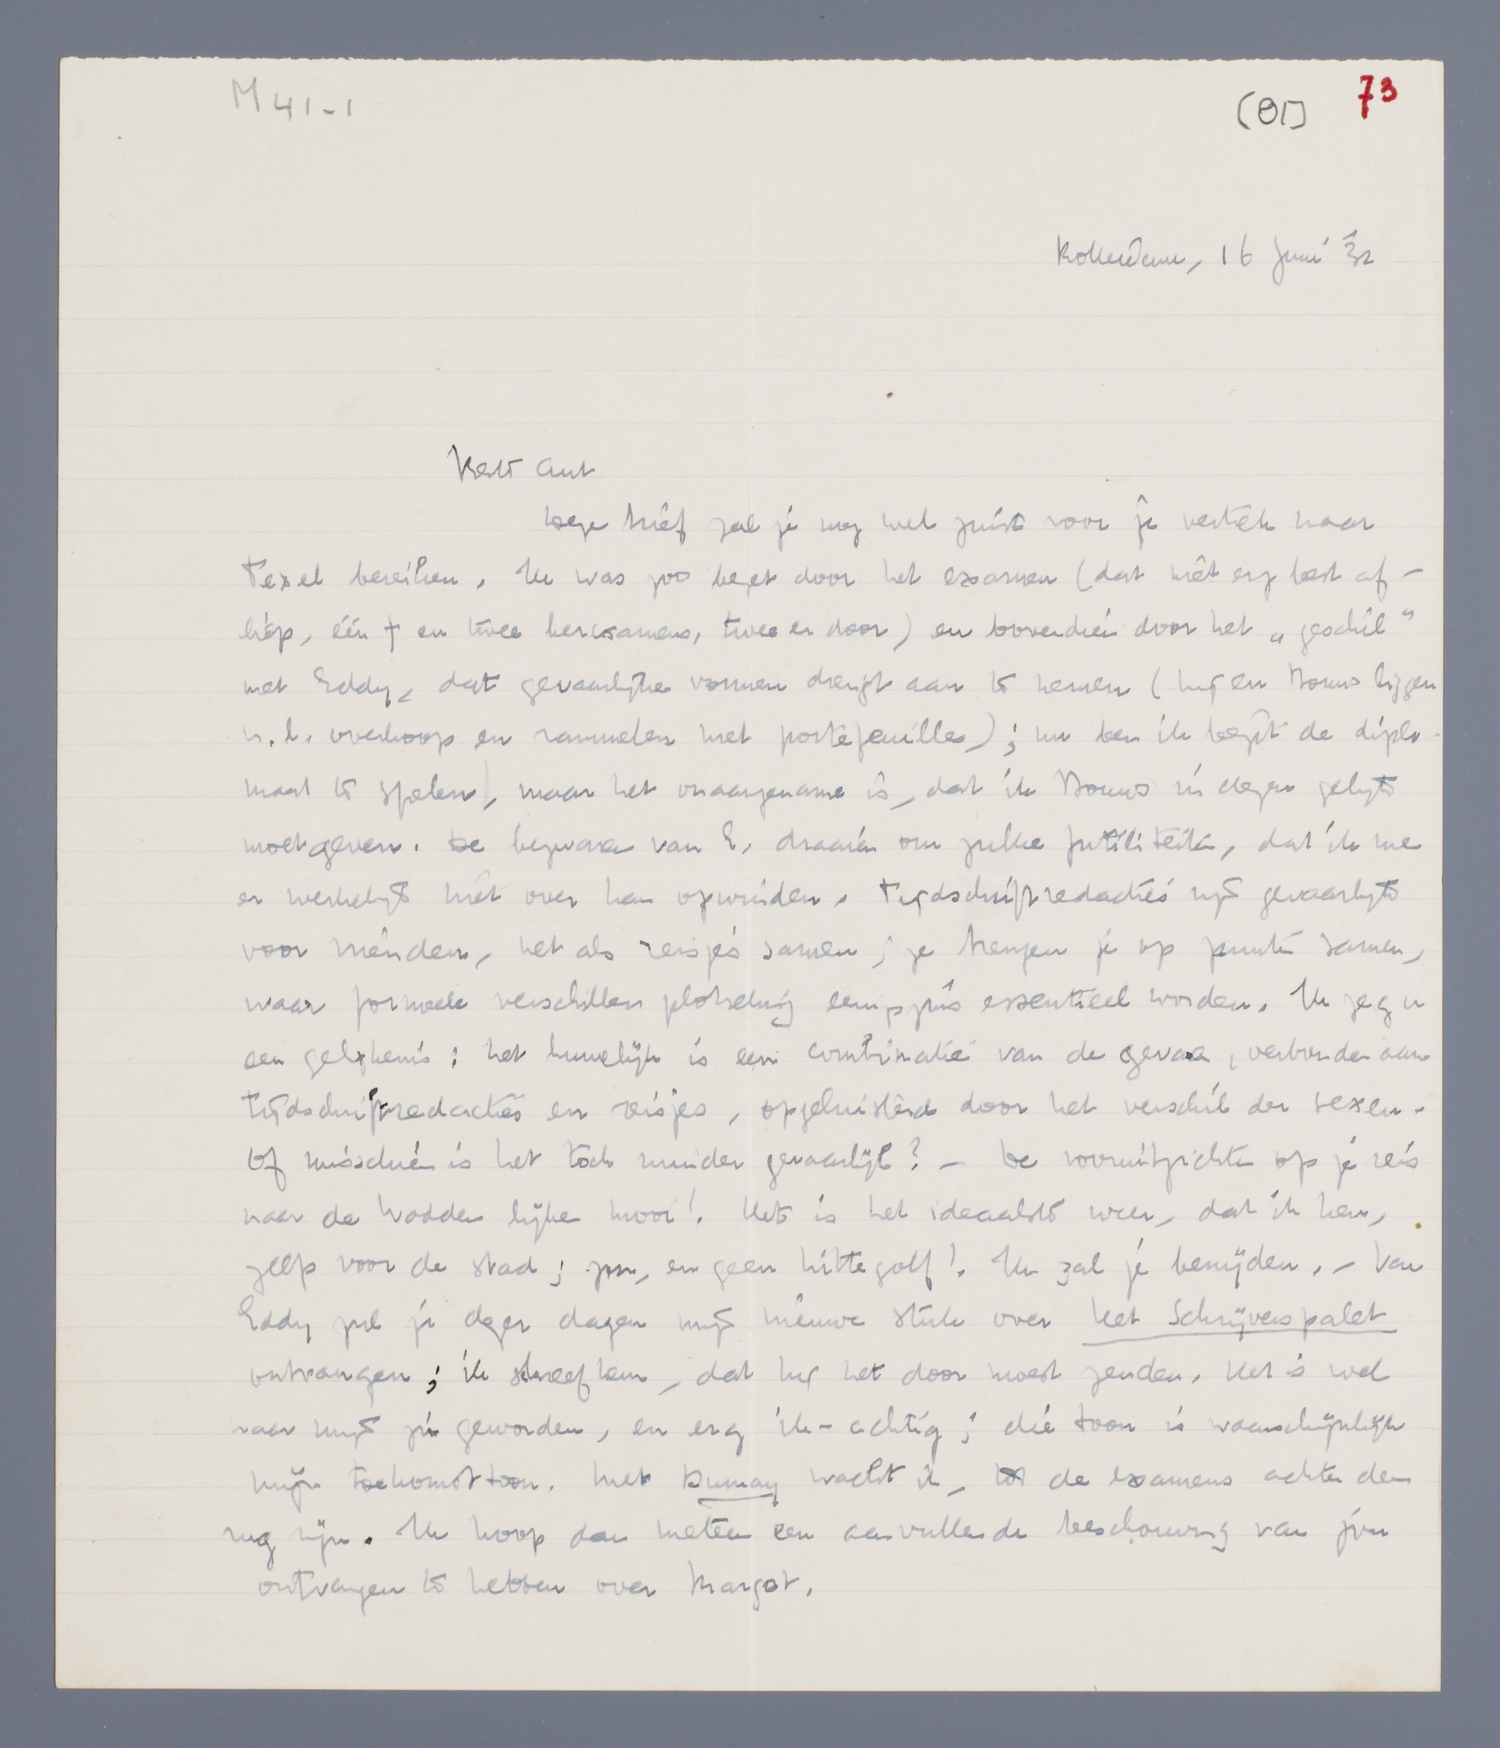 M 41-1
(81) 73
Rotterdam, 16 Juni '32
Beste Ant
Deze brief zal je nog wel juist voor je vertrek naar
Texel bereiken. Ik was zoo bezet door het examen (dat niet erg best af-
liep, één † en twee herexamens, twee er door) en bovendien door het „geschil"
met Eddy, dat gevaarlijke vormen dreigt aan te nemen (hij en Bouws liggen
n.l. overhoop en rammelen met portefeuilles); nu ben ik bezig de diplo-
maat te spelen, maar het onaangename is, dat ik Bouws in dezen gelijk
moet geven. De bezwaren van E. draaien om zulke futiliteiten, dat ik me
er werkelijk niet over kan opwinden. Tijdschriftredacties zijn gevaarlijk
voor vrienden, net als reisjes samen; ze brengen je op punten samen,
waar formeele verschillen plotseling eenigszins essentieel worden. Ik zeg u
een gelijkenis: het huwelijk is een combinatie van de gevaren, verbonden aan
tijdschriftredacties en reisjes, opgeluisterd door het verschil der sexen.
Of misschien is het toch minder gevaarlijk? – De vooruitzichten op je reis
naar de Wadden lijken mooi! Het is het ideaalste weer, dat ik ken,
zelfs voor de stad; zon, en geen hittegolf! Ik zal je benijden. – Van
Eddy zul je dezer dagen mijn nieuwe stuk over Het Schrijverspalet
ontvangen; ik schreef hem, dat hij het door moest zenden. Het is wel
naar mijn zin geworden, en erg ik-achtig; die toon is waarschijnlijk
mijn toekomst-toon. Met Dumay wacht ik, tot de examens achter den
rug zijn. Ik hoop dan meteen een aanvullende beschouwing van jou
ontvangen te hebben over Margot.